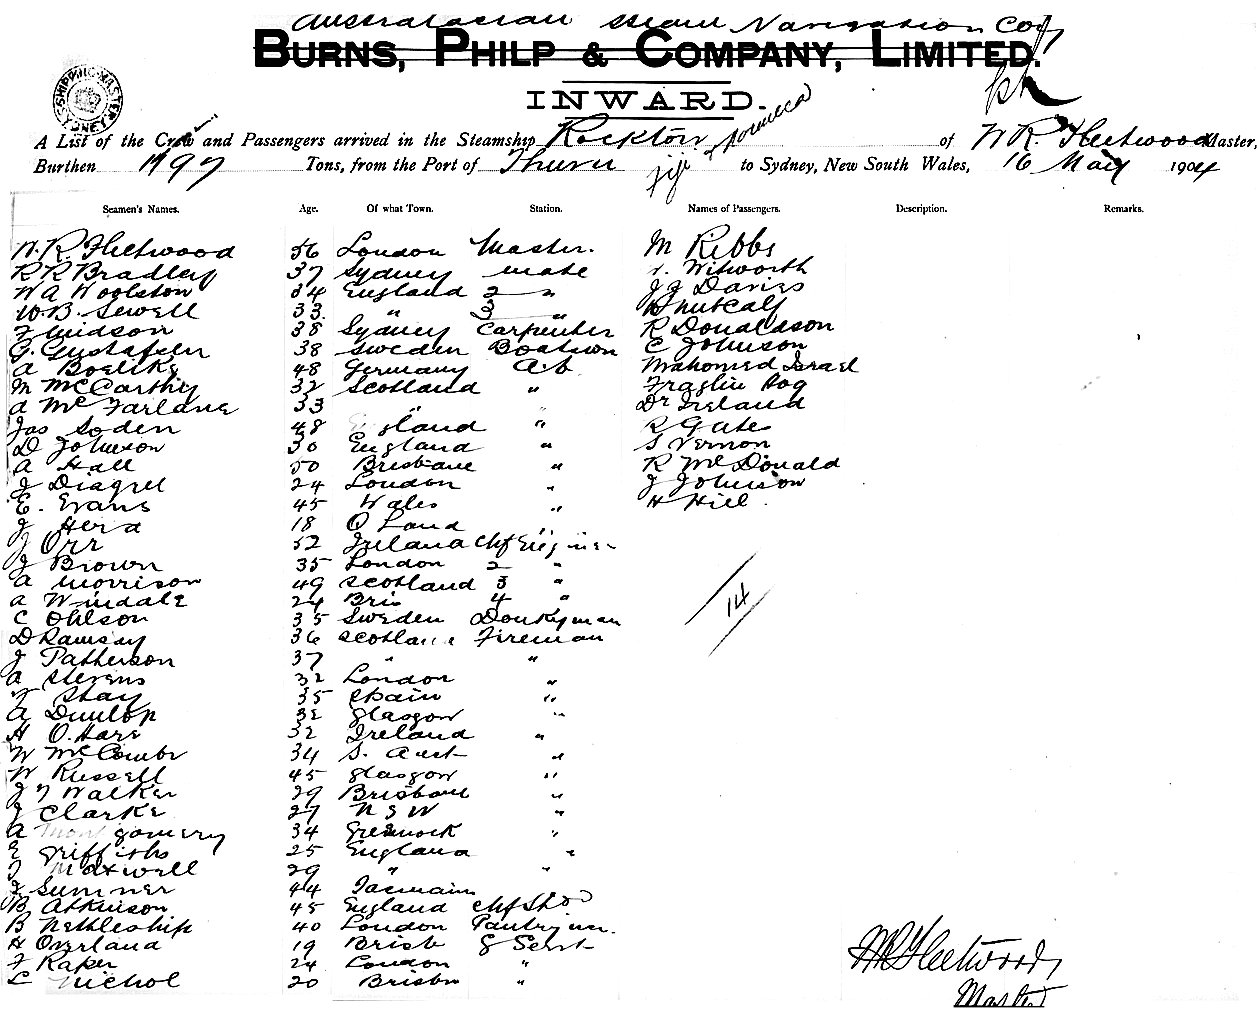 Australasian Steam Navigation Coy
BURNS, PHILP & COMPANY, LIMITED.
INWARD.
SHIPPING MASTER SYDNEY
A List of the Crew and Passengers arrived in the Steamship Rockton of W R Fleetwood Master,
Burthen 1797 Tons, from the Port of Fiji to Sydney, New South Wales, 16 May 1904
Seamen's Names. Age. Of what Town. Station. Names of Passengers. Description. Remarks.
W. R. Fleetwood 56 London Master. M Ribbs
R R Bradley 37 Sydney mate Witworth
W A Woolston 34 England 2 " J J Davies
W. B. Sewell 33. " 3 " Metcalf
F Hudson 38 Sydney Carpenter R Donaldson
G. Gustafsen 38 Sweden Boatswn C Johnson
A Boelike 48 Germany A.b Mahomed Israel
M McCarthy 32 Scotland "
A McFarlane 33 " " Dr Ireland
Jas Soden 48 England " R Gates
D Johnson 30 England " S Vernon
A Hall 50 Brisbane " R McDonald
J Diagrel 24 London " J Johnson
E. Evans 45 Wales " H Hill.
J Herd 18 Q Land "
J Orr 52 Ireland Chf Enginer
J Brown 35 London 2 "
A Morrison 49 Scotland 3 "
A Windale 24 Bris 4 "
C Ohlson 35 Sweden Donkyman
D Ramsay 36 Scotland Fireman
J Patterson 37 " "
A Stevens 32 London "
Shay 35 Spain "
A Dunlop 32 Glasgow "
H O.Hare 32 Ireland "
W McCombe 34 S. Aust "
W Russell 45 Glasgow "
J Y Walker 29 Brisbane "
J Clarke 27 N S W "
A Montgomery 34 Greenock "
E Griffiths 25 England "
J Maxwell 29 " "
J Sumner 44 Tasmain "
B Atkinson 45 England Chf Stod
B Nettleship 40 London Pantryman.
H Overland 19 Brisb G Sevt
F Raper 24 London "
L Nichol 20 Brisbn "
14
W R Fleetwood,
Master